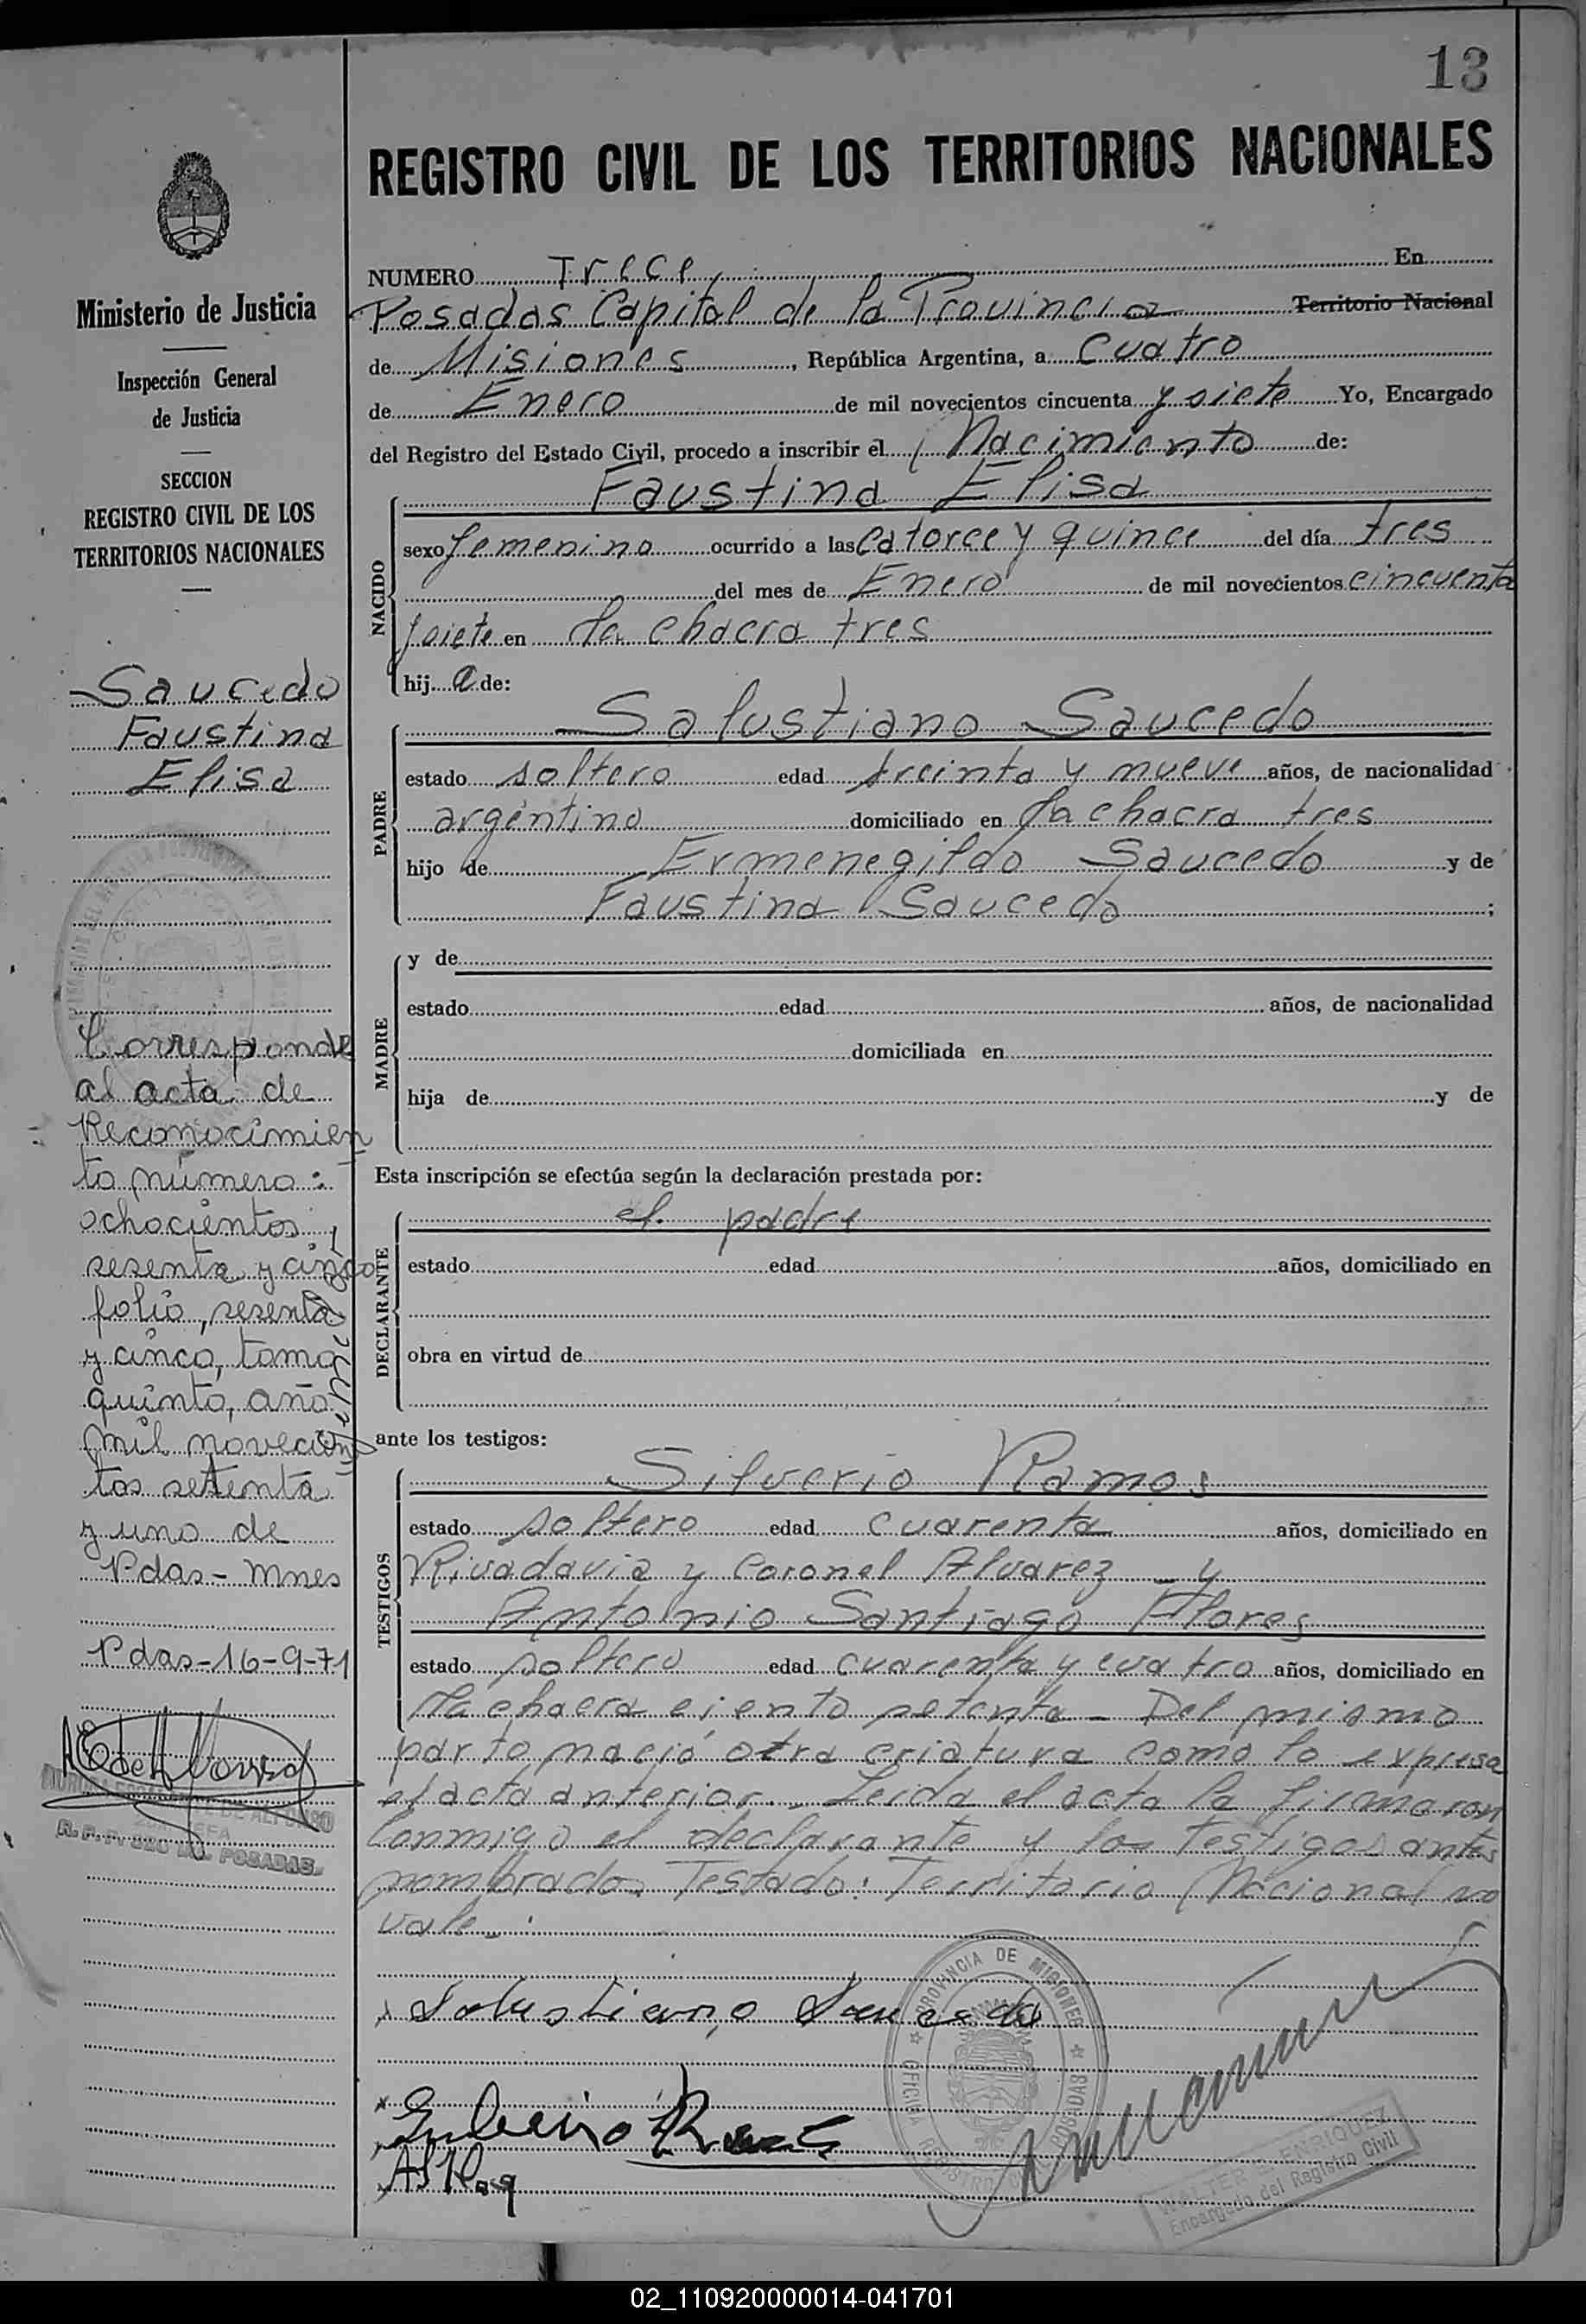 13
REGISTRO CIVIL DE LOS TERRITORIOS NACIONALES
Ministerio de Justicia
Inspección General
de Justicia
SECCION
REGISTRO CIVIL DE LOS
TERRITORIOS NACIONALES
Saucedo
Faustina
Elisa
Corresponde
al acta de
Reconocimien
to número:
ochocientos
sesenta y cinco
folio, sesenta
y cinco, tomo
quinto, año
mil novecien
tos setenta
y uno de
Pdas-Mnes
Pdas-16-9-71
NUMERO Trece En
Posadas Capital de la Provincia Territorio Nacional
de Misiones, República Argentina, a Cuatro
de Enero de mil novecientos cincuenta y siete Yo, Encargado
del Registro del Estado Civil, procedo a inscribir el Nacimiento de:
NACIDO
Faustina Elisa
sexo femenino ocurrido a las catorce y quince del día tres
del mes de Enero de mil novecientos cincuenta
y siete en la chacra tres
hija de:
PADRE
Salustiano Saucedo
estado soltero edad treinta y nueve años, de nacionalidad
argentino domiciliado en la chacra tres
hijo de Ermenegildo Saucedo y de
Faustina Saucedo;
MADRE
y de
estado edad años, de nacionalidad
domiciliada en
hija de y de
Esta inscripción se efectúa según la declaración prestada por:
DECLARANTE
el padre
estado edad años, domiciliado en
obra en virtud de
ante los testigos:
TESTIGOS
Silverio Ramos
estado soltero edad cuarenta años, domiciliado en
Rivadavia y Coronel Alvarez - y
Antonio Santiago Flores
estado soltero edad cuarenta y cuatro años, domiciliado en
la chacra ciento setenta - Del mismo
parto nació otra criatura como lo expresa
el acta anterior. Leida el acta la firmaron
conmigo el declarante y los testigos antes
nombrados Testado: Territorio Nacional no
vale.
Salustiano Saucedo
PROVINCIA DE MISIONES
OFICINA REGISTRO CIVIL POSADAS
WALTER E. ENRIQUEZ
Encargado del Registro Civil
02_110920000014-041701